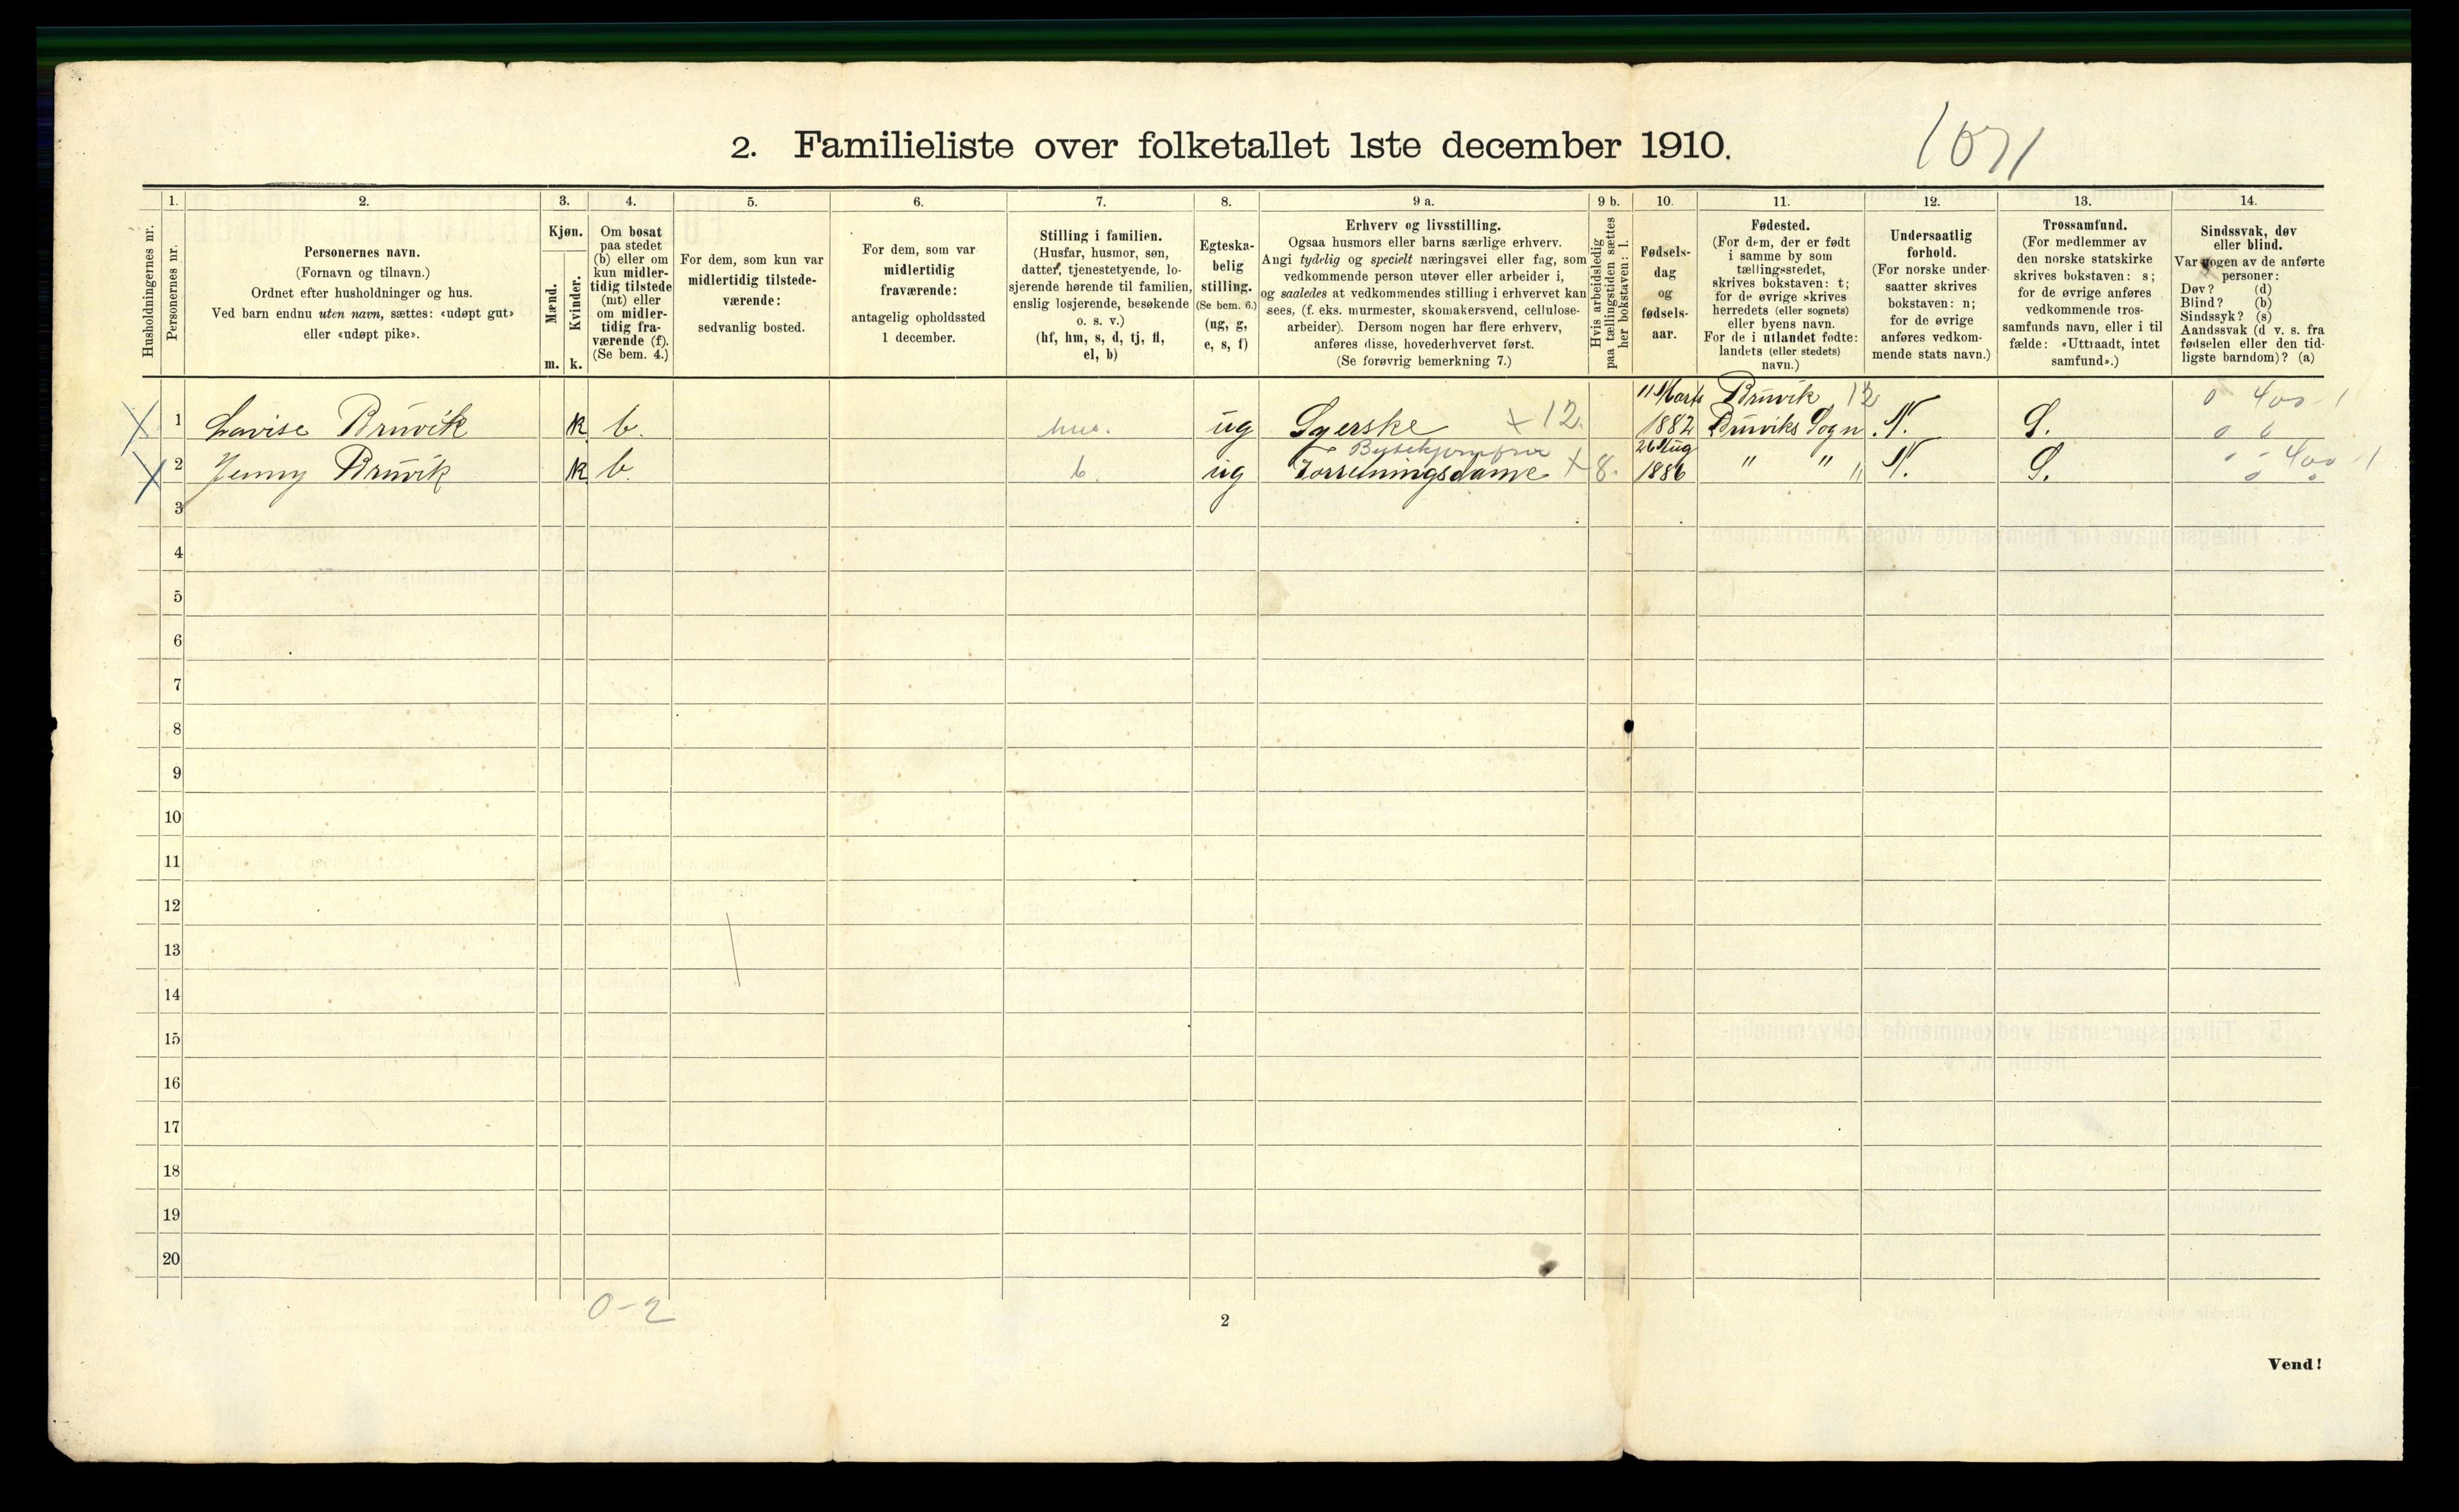 2. Familieliste over folketallet 1ste december 1910.
1071
Husholdningernes nr.
1.
Personernes nr.
2.
Personernes navn.
(Fornavn og tilnavn.)
Ordnet efter husholdninger og hus.
Ved barn endnu uten navn, sættes: «udøpt gut»
eller «udøpt pike».
3.
Kjøn.
Mænd.
m.
Kvinder.
k.
4.
Om bosat
paa stedet
(b) eller om
kun midler-
tidig tilstede
(mt) eller
om midler-
tidig fra-
værende (f).
(Se bem. 4.)
5.
For dem, som kun var
midlertidig tilstede-
værende:
sedvanlig bosted.
6.
For dem, som var
midlertidig
fraværende:
antagelig opholdssted
1 december.
7.
Stilling i familien.
(Husfar, husmor, søn,
datter, tjenestetyende, lo-
sjerende hørende til familien,
enslig losjerende, besøkende
o. s. v.)
(hf, hm, s, d, tj, fl,
el, b)
8.
Egteska-
belig
stilling.
(Se bem. 6.)
(ug, g,
e, s, f)
9 a.
Erhverv og livsstilling.
Ogsaa husmors eller barns særlige erhverv.
Angi tydelig og specielt næringsvei eller fag, som
vedkommende person utøver eller arbeider i,
og saaledes at vedkommendes stilling i erhvervet kan
sees, (f. eks. murmester, skomakersvend, cellulose-
arbeider). Dersom nogen har flere erhverv,
anføres disse, hovederhvervet først.
(Se forøvrig bemerkning 7.)
9 b.
Hvis arbeidsledig
paa tællingstiden sættes
her bokstaven: l.
10.
Fødsels-
dag
og
fødsels-
aar.
11.
Fødested.
(For dem, der er født
i samme by som
tællingsstedet,
skrives bokstaven: t;
for de øvrige skrives
herredets (eller sognets)
eller byens navn.
For de i utlandet fødte:
landets (eller stedets)
navn.)
12.
Undersaatlig
forhold.
(For norske under-
saatter skrives
bokstaven: n;
for de øvrige
anføres vedkom-
mende stats navn.)
13.
Trossamfund.
(For medlemmer av
den norske statskirke
skrives bokstaven: s;
for de øvrige anføres
vedkommende tros-
samfunds navn, eller i til
fælde: «Uttraadt, intet
samfund».)
14.
Sindssvak, døv
eller blind.
Var nogen av de anførte
personer:
Døv? (d)
Blind? (b)
Sindssyk? (s)
Aandssvak (d v. s. fra
fødselen eller den tid-
ligste barndom)? (a)
X 1 Lovise Brüvik k b. ug Syerske + 12. 11 Marts 1882 Brüvik 12 Brüviks Sogn N. S. 0 400 - 1
0 0
X 2 Jenny Brüvik k b. b. ug Forretningsdame + 8. 26 Aug 1886 " " " N. S. 400 - 1
3
4
5
6
7
8
9
10
11
12
13
14
15
16
17
18
19
20
0-2
2
Vend!